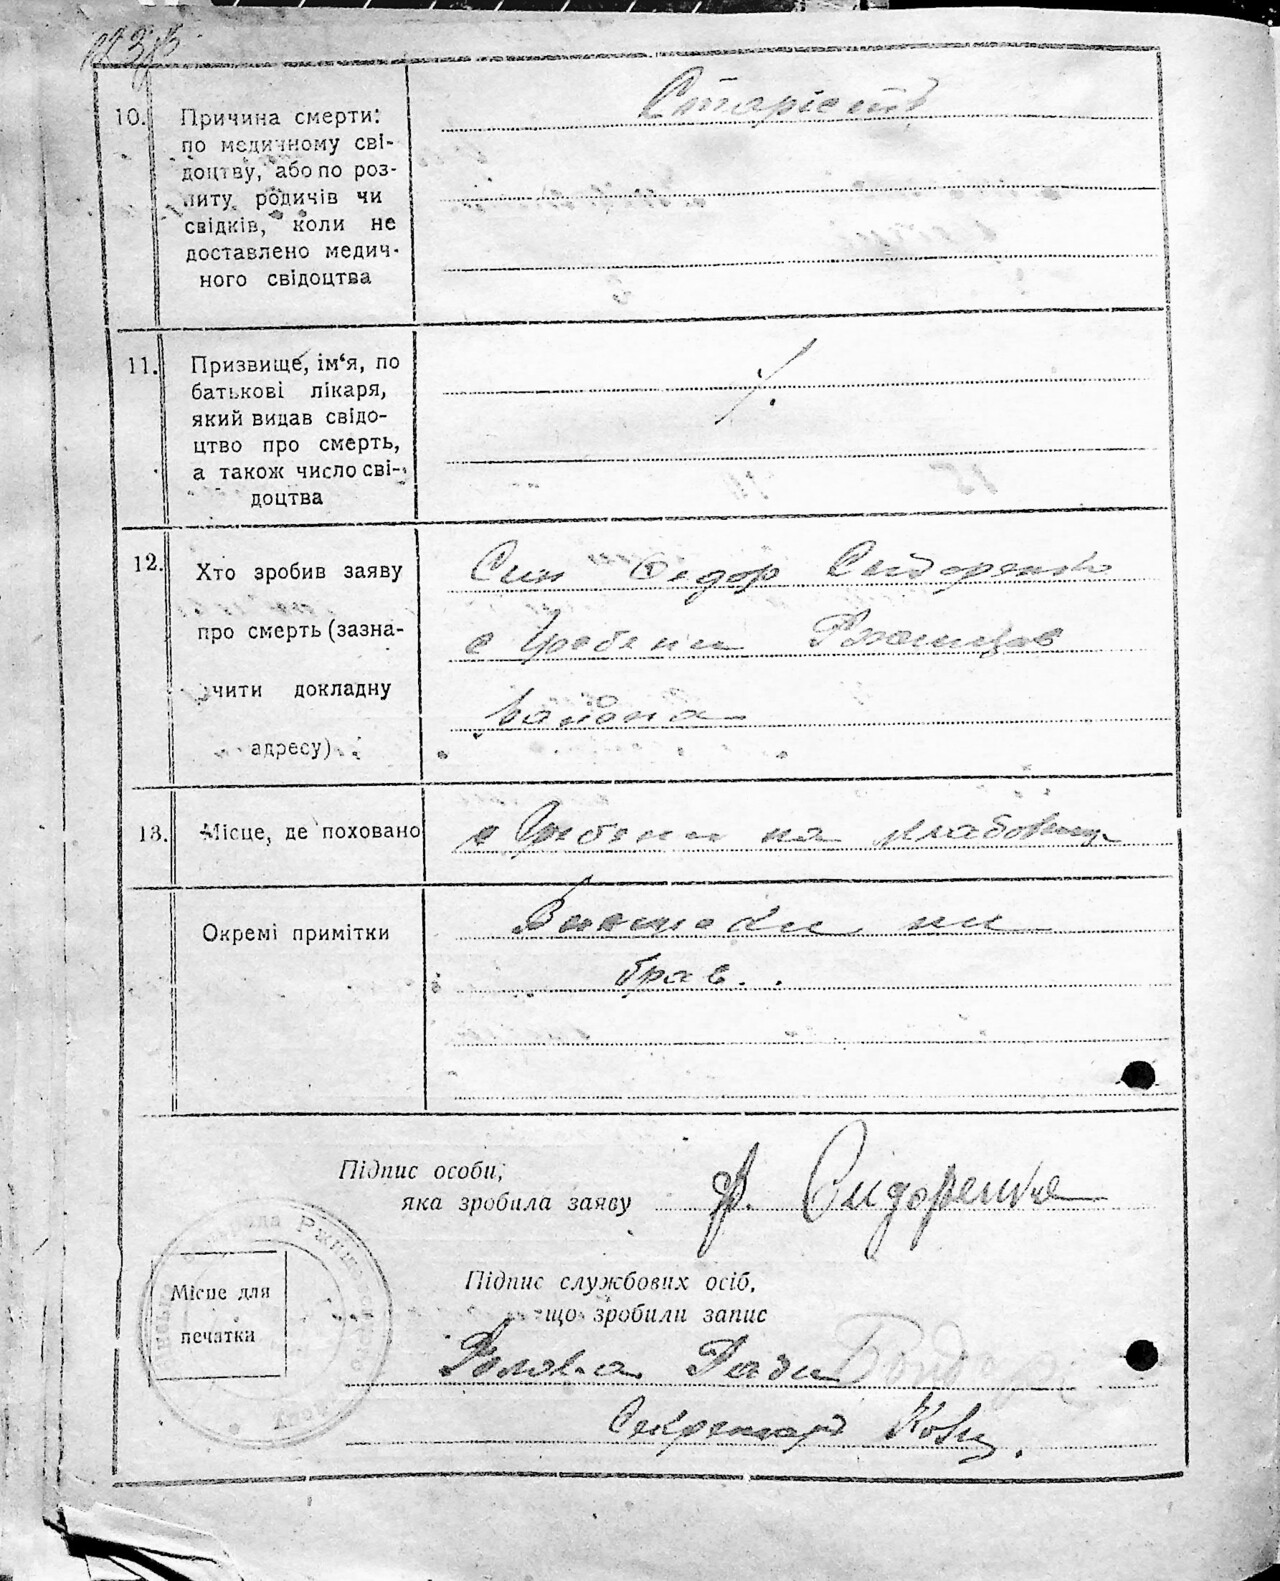 10. Причина смерти:
по медичному сві-
доцтву, або по роз-
питу родичів чи
свідків, коли не
доставлено медич-
ного свідоцтва
Старість
11. Призвище, ім‘я, по
батькові лікаря,
який видав свідо-
цтво про смерть,
а також число сві-
доцтва
12. Хто зробив заяву
про смерть (зазна-
чити докладну
адресу)
Син Федор Сидоренко
с Гребени Ржищів
района
13. Місце, де поховано
с Гребени на кладовищ
Окремі примітки
Виписки ни
брав.
Підпис особи,
яка зробила заяву
Ф. Сидоренко
Місце для
печатки
Підпис службових осіб,
що зробили запис
Голова Ради Бондар
Секретарь